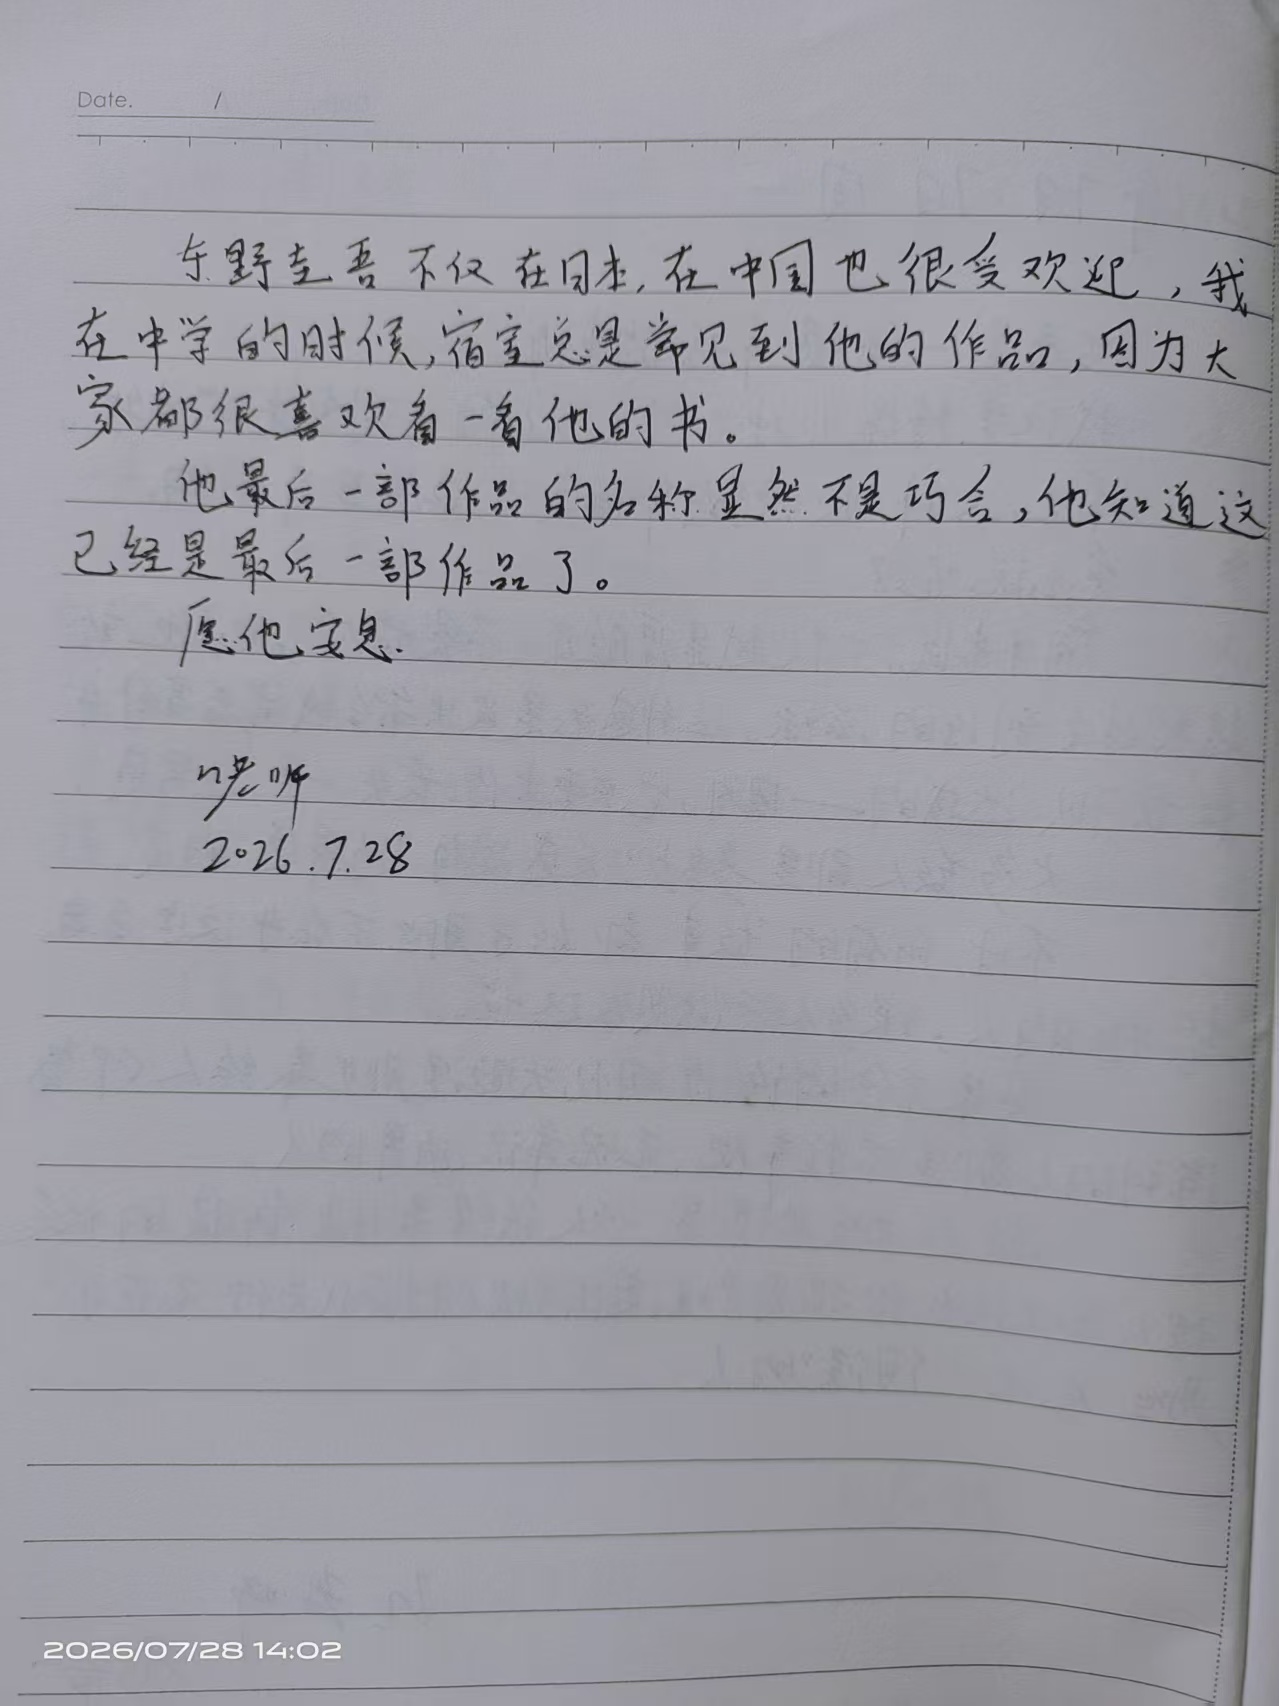 Date. /
东野圭吾不仅在日本,在中国也很受欢迎,我
在中学的时候,宿室总是常见到他的作品,因为大
家都很喜欢看一看他的书。
他最后一部作品的名称显然不是巧合,他知道这
已经是最后一部作品了。
愿他安息.
老师
2026.7.28
2026/07/28 14:02